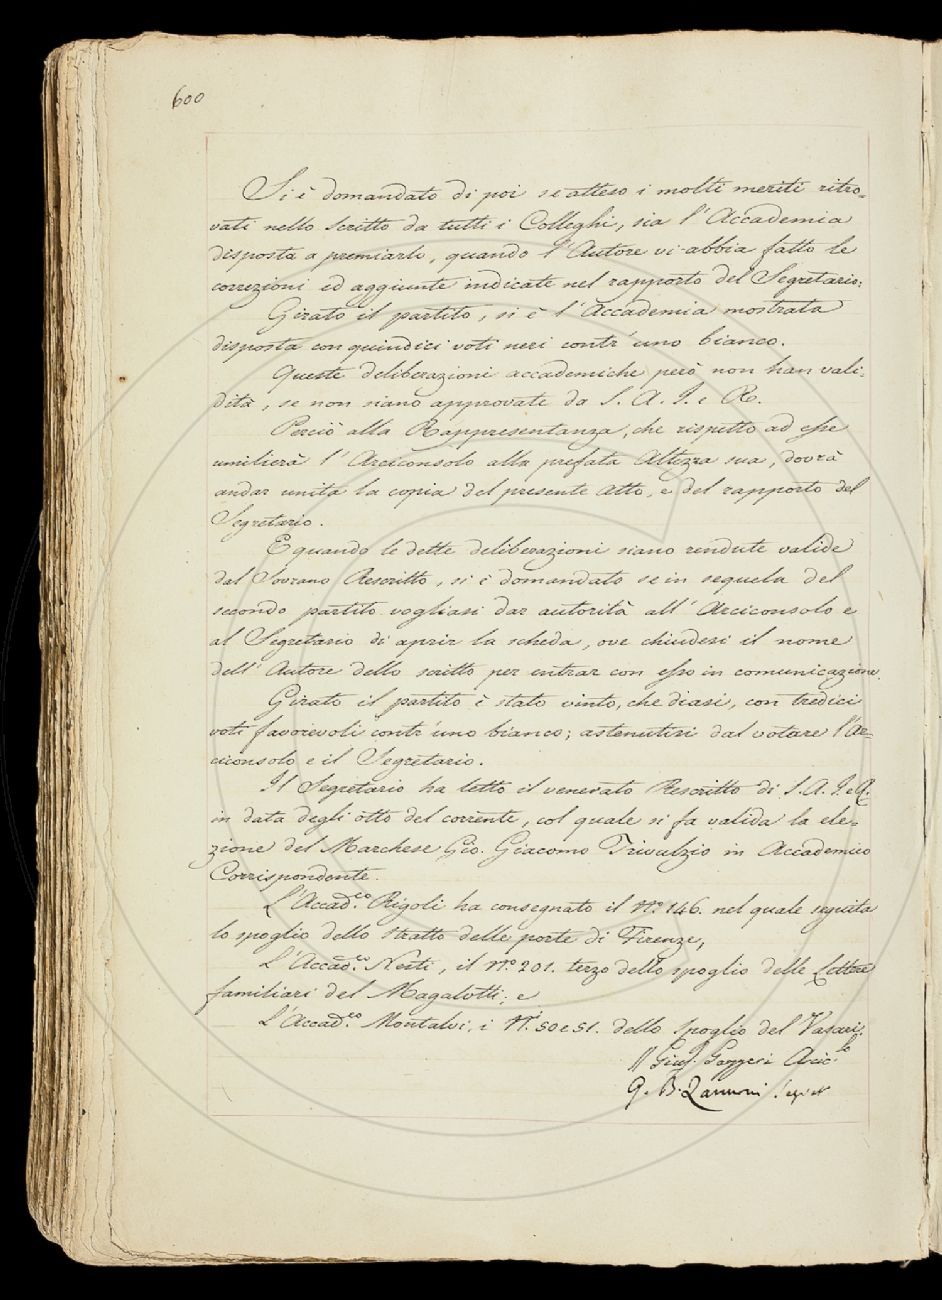 600
Si è domandato di poi se atteso i molti meriti ritro-
vati nello scritto da tutti i Colleghi, sia l'Accademia
disposta a premiarlo, quando l'Autore vi abbia fatto le
correzioni ed aggiunte indicate nel rapporto del Segretario.
Girato il partito, si è l'Accademia mostrata
disposta con quindici voti neri contr'uno bianco.
Queste deliberazioni accademiche però non han vali-
dità, se non siano approvate da S. A. I. e R.
Perciò alla Rappresentanza, che rispetto ad esse
umilierà l'Arciconsolo alla prefata Altezza sua, dovrà
andar unita la copia del presente atto, e del rapporto del
Segretario.
E quando le dette deliberazioni siano rendute valide
dal Sovrano Rescritto, si è domandato se in sequela del
secondo partito vogliasi dar autorità all'Arciconsolo e
al Segretario di aprir la scheda, ove chiudesi il nome
dell'Autore dello scritto per entrar con esso in comunicazione.
Girato il partito è stato vinto, che diasi, con tredici
voti favorevoli contr'uno bianco; astenutisi dal votare l'Ar-
ciconsolo e il Segretario.
Il Segretario ha letto il venerato Rescritto di S. A. I. e R.
in data degli otto del corrente, col quale si fa valida la ele-
zione del Marchese Gio. Giacomo Trivulzio in Accademico
Corrispondente.
L'Accad.co Rigoli ha consegnato il N.o 146. nel quale seguita
lo spoglio dello stratto delle porte di Firenze,
L'Accad.co Nesti, il N.o 201. terzo dello spoglio delle Lettere
familiari del Magalotti; e
L'Accad.co Montalvi, i N.i 50 e 51. dello spoglio del Vasari.
Arcic.lo
G. B. Zannoni Segret